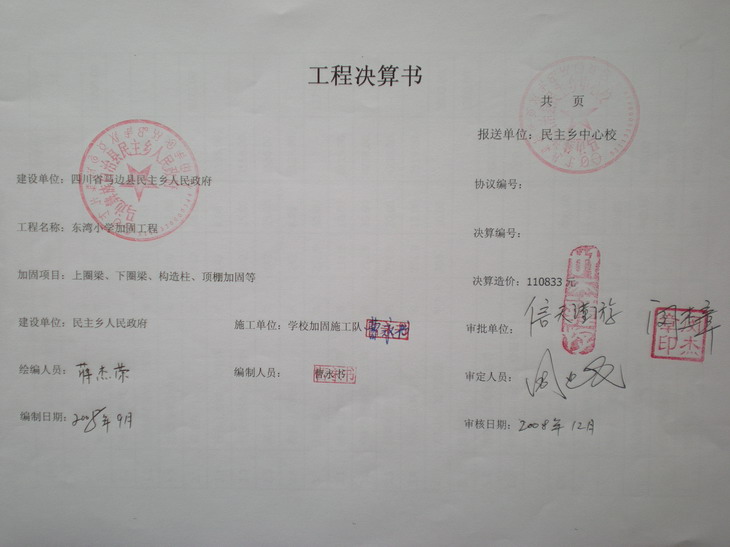 工程决算书
共 页
报送单位：民主乡中心校
建设单位：四川省马边县民主乡人民政府
协议编号：
工程名称：东湾小学加固工程
决算编号：
加固项目：上圈梁、下圈梁、构造柱、顶棚加固等
决算造价：110833 元
建设单位：民主乡人民政府
施工单位：学校加固施工队 曹永书
审批单位：
绘编人员：蒋杰荣
编制人员：曹永书
审定人员：
编制日期：2008年9月
审核日期：2008年12月